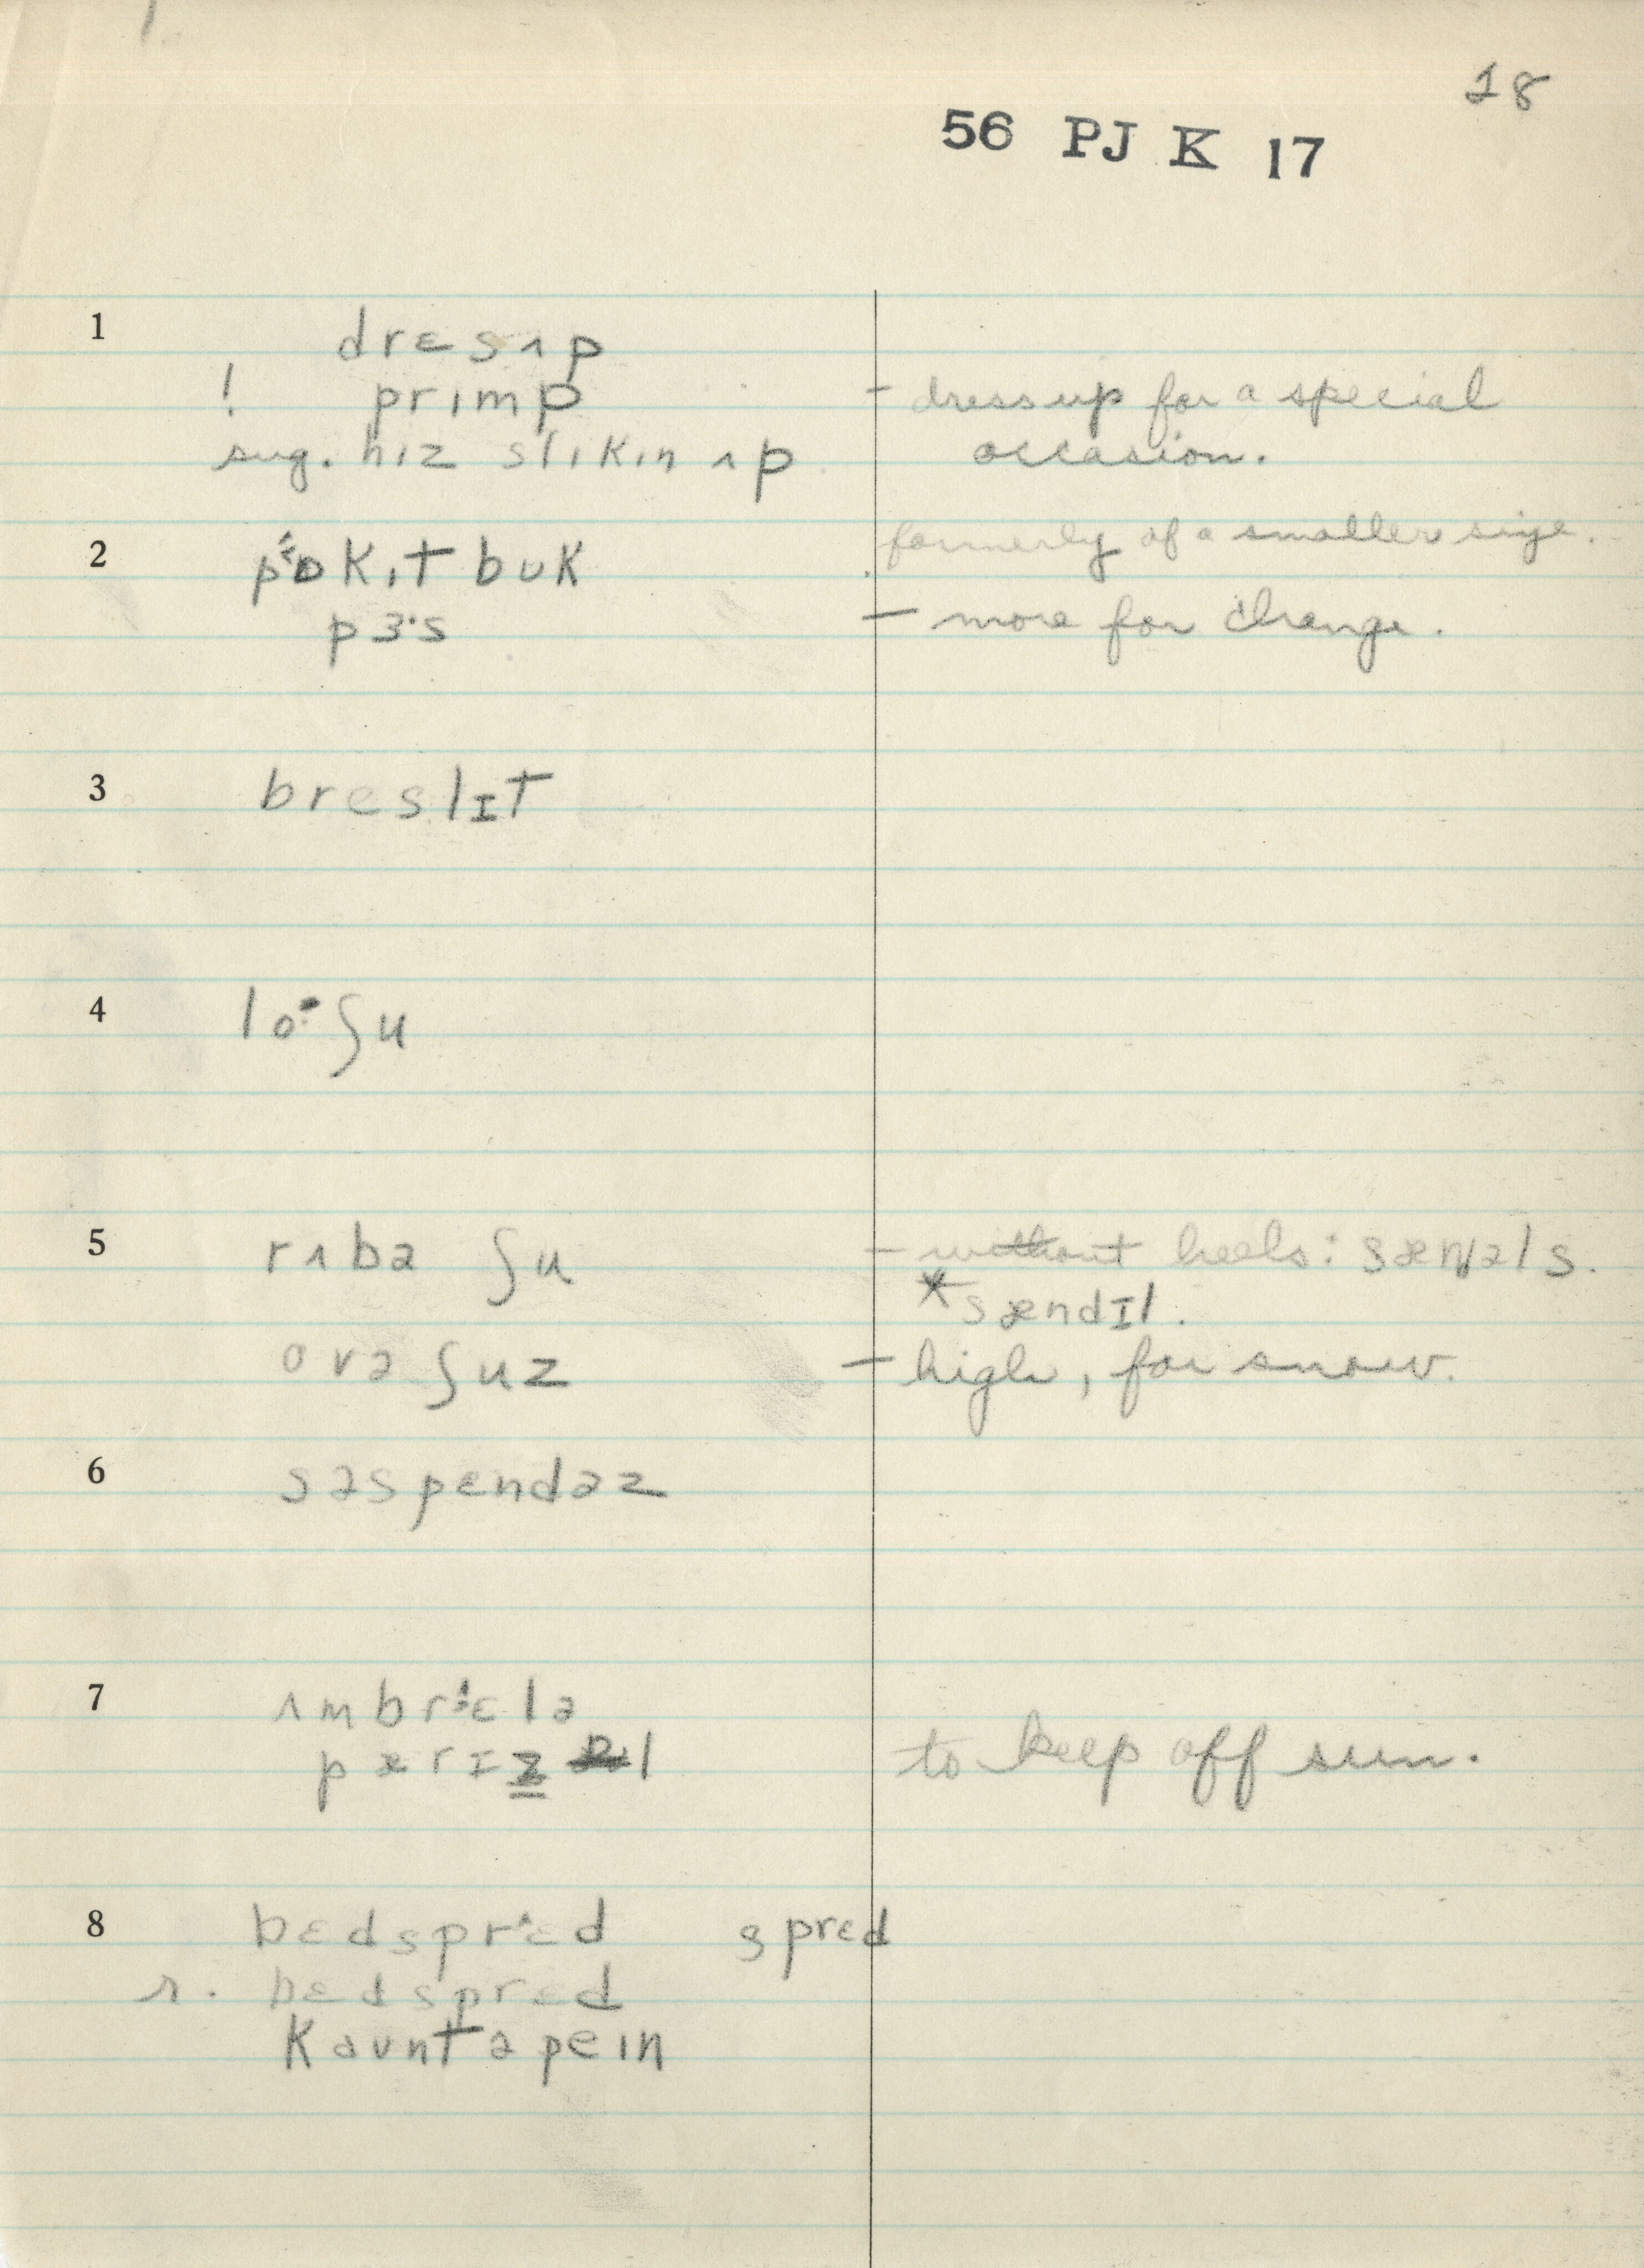 18
56 PJ K 17
1 drɛsʌp
! prɪmp - dress up for a special
sug. hɪz slɪkɪn ʌp occasion.
formerly of a smaller size.
2 pɒkɪt bʊk
pɜ·s — more for change.
3 breslɪt
4 lo· ʃu
5 rʌbə ʃu - without heels: sænəls.
*sændɪl.
ovə ʃuz — high, for snow.
6 səspendəz
7 ʌmbrɛlə
pærɪzl to keep off sun.
8 bɛdsprɛd sprɛd
r. bɛdsprɛd
kaʊntəpeɪn